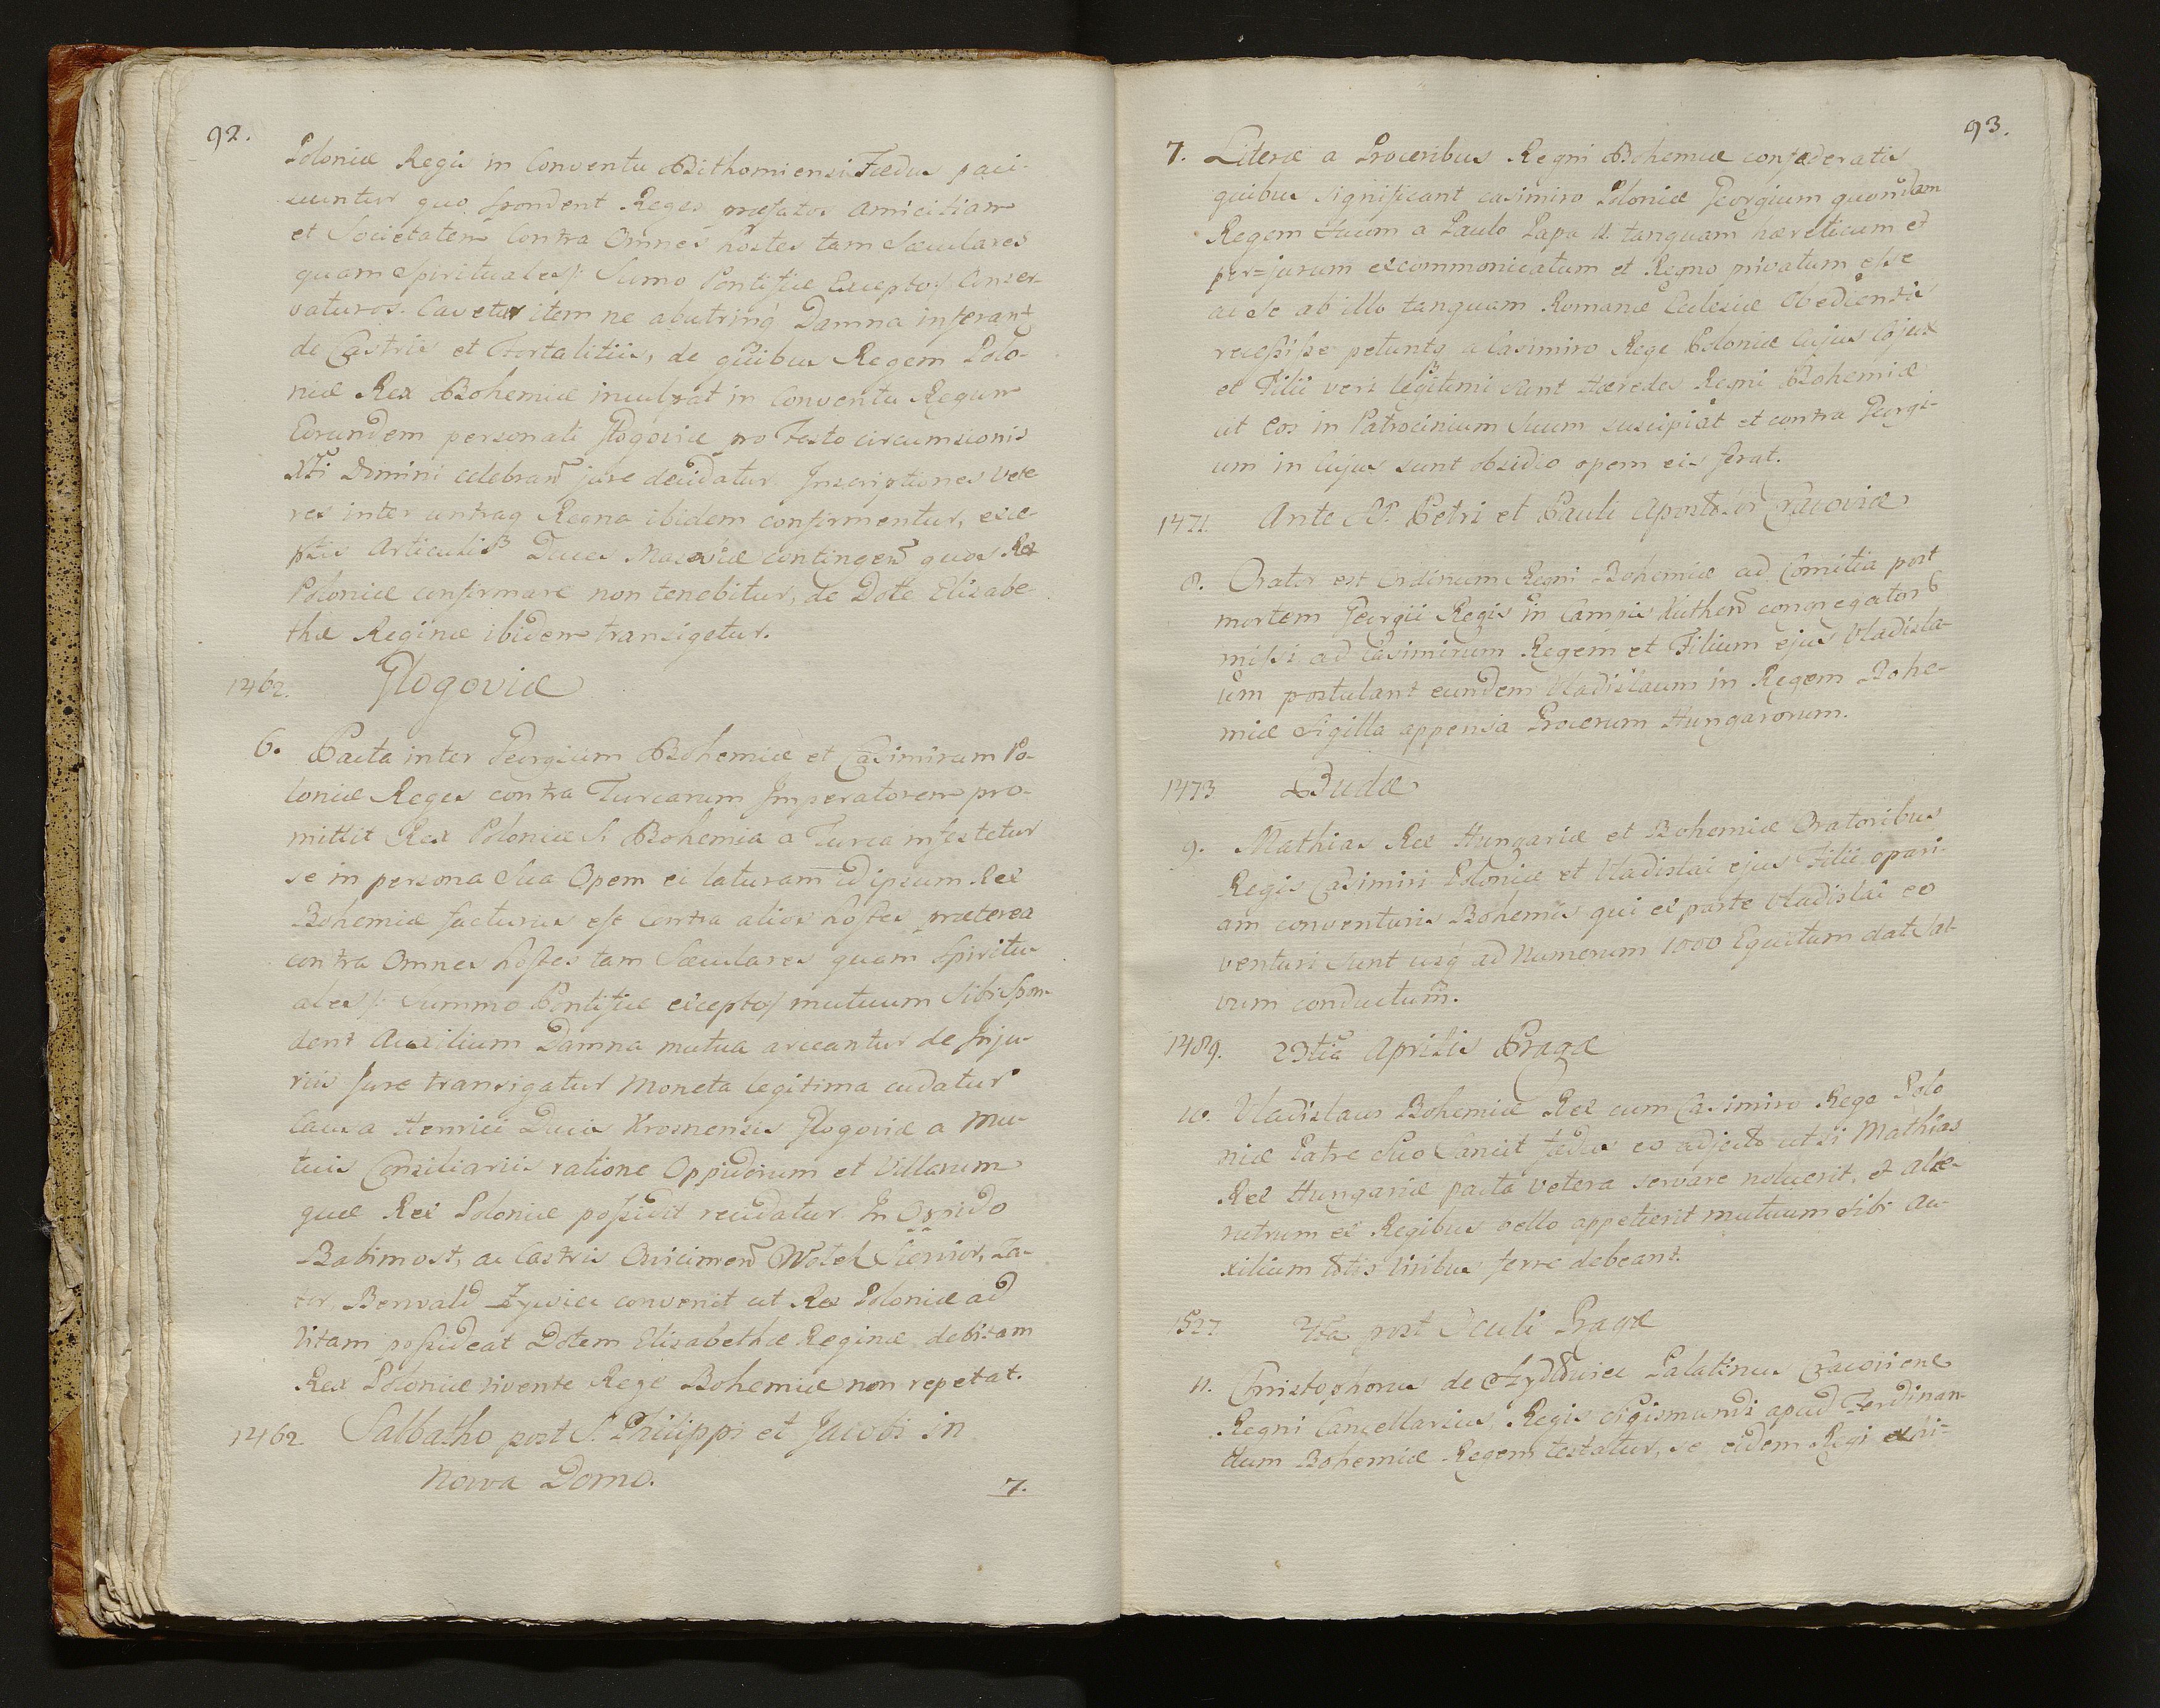 92.
Poloniæ Regis in Conventu Bithomiensi Fædus paci-
suntur quo spondent Reges præfatos amicitiam
et Societatem Contra Omnes hostes tam Sæculares
quam Spirituales /: Sumo Pontifice Excepto :/ Conser-
vaturos. Cavetur item ne abutrinq Damna inferant
de Castris et Fortalitiis, de quibus Regem Polo-
niæ Rex Bohemiæ inculpat in Conventu Regum
Eorundem personali Glogoviæ pro Festo circumsionis
Xti Domini celebrand jure decidatur. Inscriptiones vete
res inter utraq Regna ibidem confirmentur, exce-
ptis Articulis Duces Masoviæ contingen quos Rex
Poloniæ confirmare non tenebitur, de Dote Elisabe-
thæ Reginæ ibidem transigetur.
1462. Glogoviæ
6. Pacta inter Georgium Bohemiæ et Casimirum Po-
loniæ Reges contra Turcarum Imperatorem pro-
mittit Rex Poloniæ Si Bohemia a Turca infestetur
se in persona Sua Opem ei laturam id ipsum Rex
Bohemiæ facturus est Contra alios hostes præterea
contra Omnes hostes tam Sæculares quam Spiritu-
ales /: Summo Pontifice excepto :/ mutuum sibi spon-
dent Auxilium Damna mutua arceantur de Inju-
riis Jure transigatur Moneta legitima cudatur
Causa Henrici Ducis Krosnensis Glogoviæ a Mu-
tuis Consiliariis ratione Oppidorum et Villarum
quæ Rex Poloniæ possidit recudatur. In Oppido
Babimost, ac Castris Oswicimen Wolek Siewior, Za-
tor, Berwald Zywiec convenit ut Rex Poloniæ ad
Vitam possideat Dotem Elisabethæ Reginæ debitam
Rex Poloniæ vivente Rege Bohemiæ non repetat.
1462. Sabbatho post S. Philippi et Jacobi in
Nowa Domo.
7.
93.
7. Literæ a Proceribus Regni Bohemiæ confæderatis
quibus significant Casimiro Poloniæ Georgium quondam
Regem Suum a Paulo Papa II. tanquam hæreticum et
per=jurum excommonicatum et Regno privatum esse
ac se ab illo tanquam Romanæ Eclesiæ Obedientes
recessisse petuntq a Casimiro Rege Poloniæ Cujus Cojux
et Filii veri legitimi sunt Hæredes Regni Bohemiæ
ut Eos in Patrocinium Suum suscipiat et contra Georgi-
um in Cujus sunt obsidio opem eis ferat.
1471. Ante SS. Petri et Pauli Apostolor Cracoviæ
8. Orator est Ordinum Regni Bohemiæ ad Comitia post
mortem Georgii Regis in Campis Kuthen congregator
missi ad Casimirum Regem et Filium ejus Vladisla-
um postulant eundem Vladislaum in Regem Bohe-
miæ Sigilla appensa Procerum Hungarorum.
1473 Budæ
9. Mathias Rex Hungariæ et Bohemiæ Oratoribus
Regis Casimiri Poloniæ et Vladislai ejus Filii opavi-
am conventuris Bohemis qui ex parte Vladislai eo
venturi Sunt usq ad Numerum 1000 Equitum dat Sal-
vum conductum.
1489. 23tia Aprilis Pragæ
10. Vladislaus Bohemiæ Rex cum Casimiro Rege Polo
niæ Patre Suo Sancit fædus eo adjecto ut si Mathias
Rex Hungariæ pacta vetera servare noluerit, et alte-
rutrum ex Regibus bello appetierit mutuum sibi au-
xilium totis Viribus ferre debeant.
1527 post Oculi Pragæ
11. Christophorus de Szydlowiec Palatinus Cracovien
Regni Cancellarius, Regis Sigismundi apud Ferdinan-
dum Bohemiæ Regem testatur, se eidem Regi exhi-